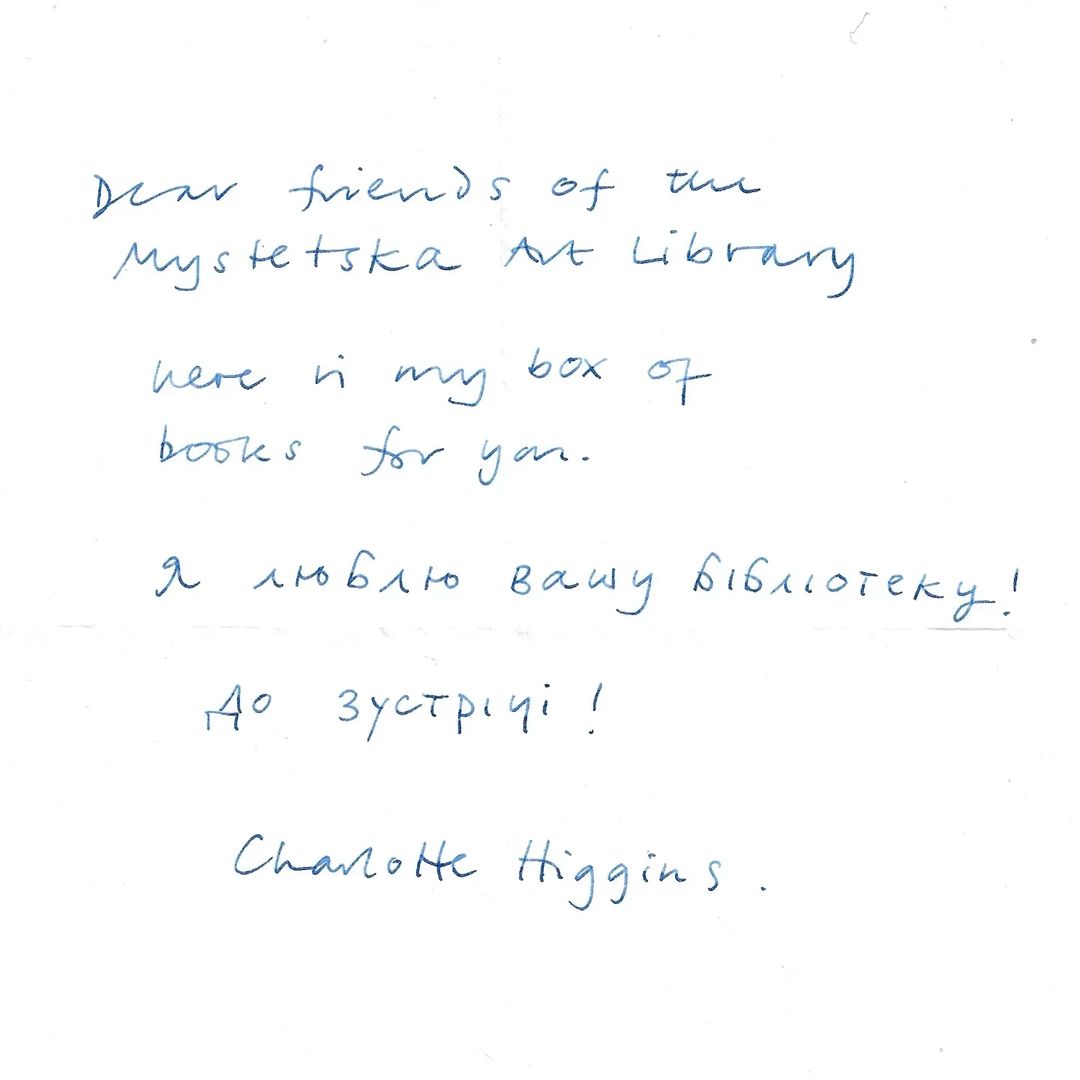 Dear friends of the
Mystetska Art Library
here is my box of
books for you.
Я люблю вашу бібліотеку!
До зустрічі!
Charlotte Higgins.